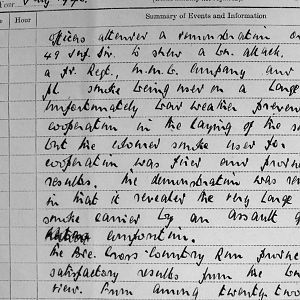 Hour
Summary of Events and Information
Hour
Officers attended a demonstration on
49 Inf. Div. to show a Bn. attack.
a Fd. Regt., M.M.G. Company and
pl. smoke being used on a large
Unfortunately bad weather preven
cooperation in the laying of the s
but the coloured smoke used for
cooperation was fired and prov
results. The demonstration was
in that it revealed the very large
smoke carried by an assault
composition.
The Bde. Cross-Country Run prov
satisfactory results from the
view. From among twenty two